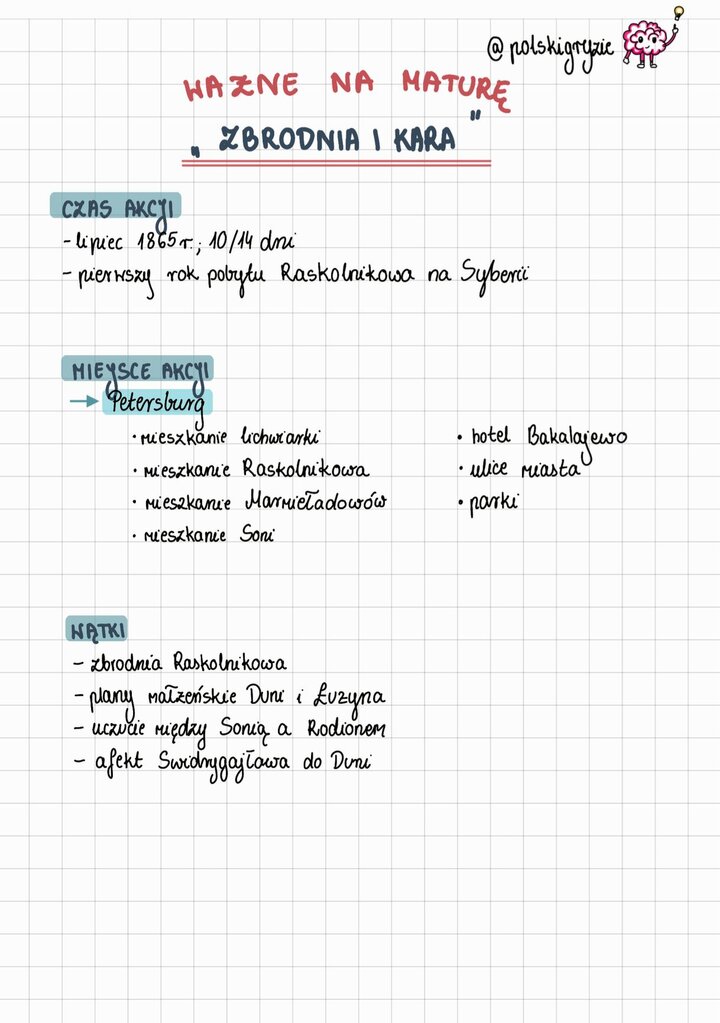 @polskigryzie
WAŻNE NA MATURĘ
„ZBRODNIA I KARA"
CZAS AKCJI
- lipiec 1865 r.; 10/14 dni
- pierwszy rok pobytu Raskolnikowa na Syberii
MIEJSCE AKCJI
→ Petersburg
• mieszkanie lichwiarki
• mieszkanie Raskolnikowa
• mieszkanie Marmieładowów
• mieszkanie Soni
• hotel Bakalajewo
• ulice miasta
• parki
WĄTKI
- zbrodnia Raskolnikowa
- plany małżeńskie Duni i Łużyna
- uczucie między Sonią a Rodionem
- afekt Swidrygajłowa do Duni